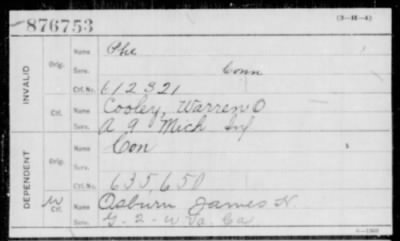 876753
(3—H—4)
INVALID
Orig.
Name Phe
Serv. Conn
Ctf. No. 612321
Ctf.
Name Cooley, Warren O
Serv. A 9 Mich Inf
DEPENDENT
Orig.
Name Con
Serv.
Ctf. No. 635,650
W Ctf.
Name Osburn James N.
Serv. G-2-W Va. Ca